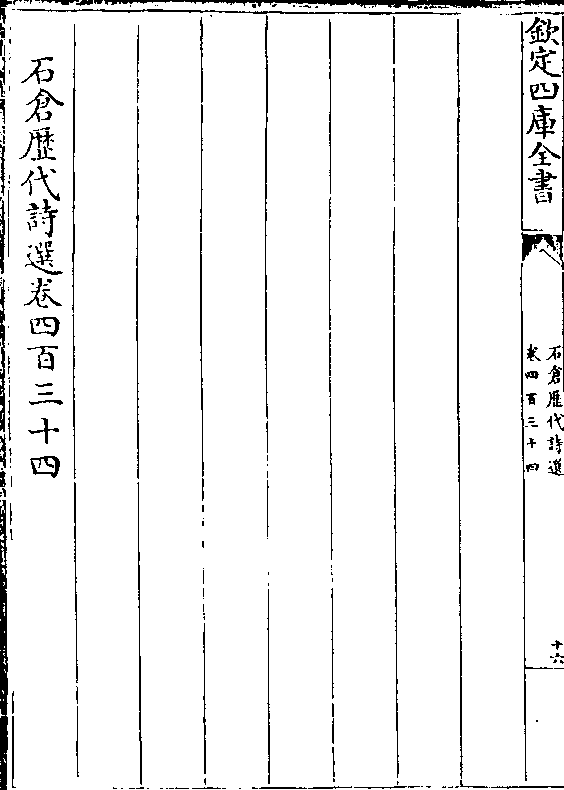 欽定四庫全書
石倉歷代詩選
卷四百三十四
十六
石倉歷代詩選卷四百三十四